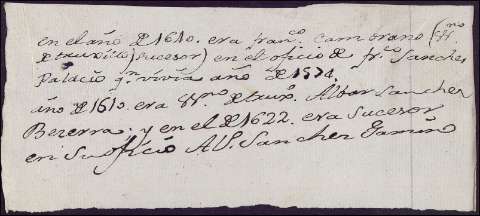 en el año de 1610. era fran.co Camorano (ss.no
de truxillo (sucesor) en el oficio de fr.co Sanches
Palacio q.n vivia año de 1574.
año de 1610. era ss.no de trux.o Albar Sanches
Bezerra. y en el de 1622. era sucesor
en su oficio Al.o Sanches